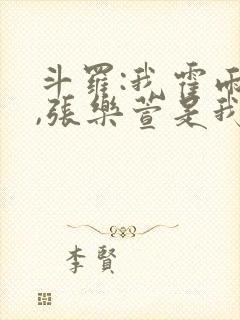 斗羅:我霍雨
,張樂萱是我
李賢